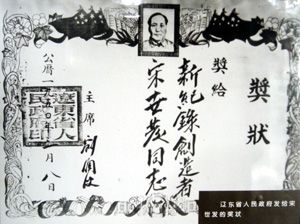 獎狀
獎給
新紀錄創造者
宋世發同志
主席
公曆一九五〇年
月八日
辽东省人民政府发给宋
世发的奖状